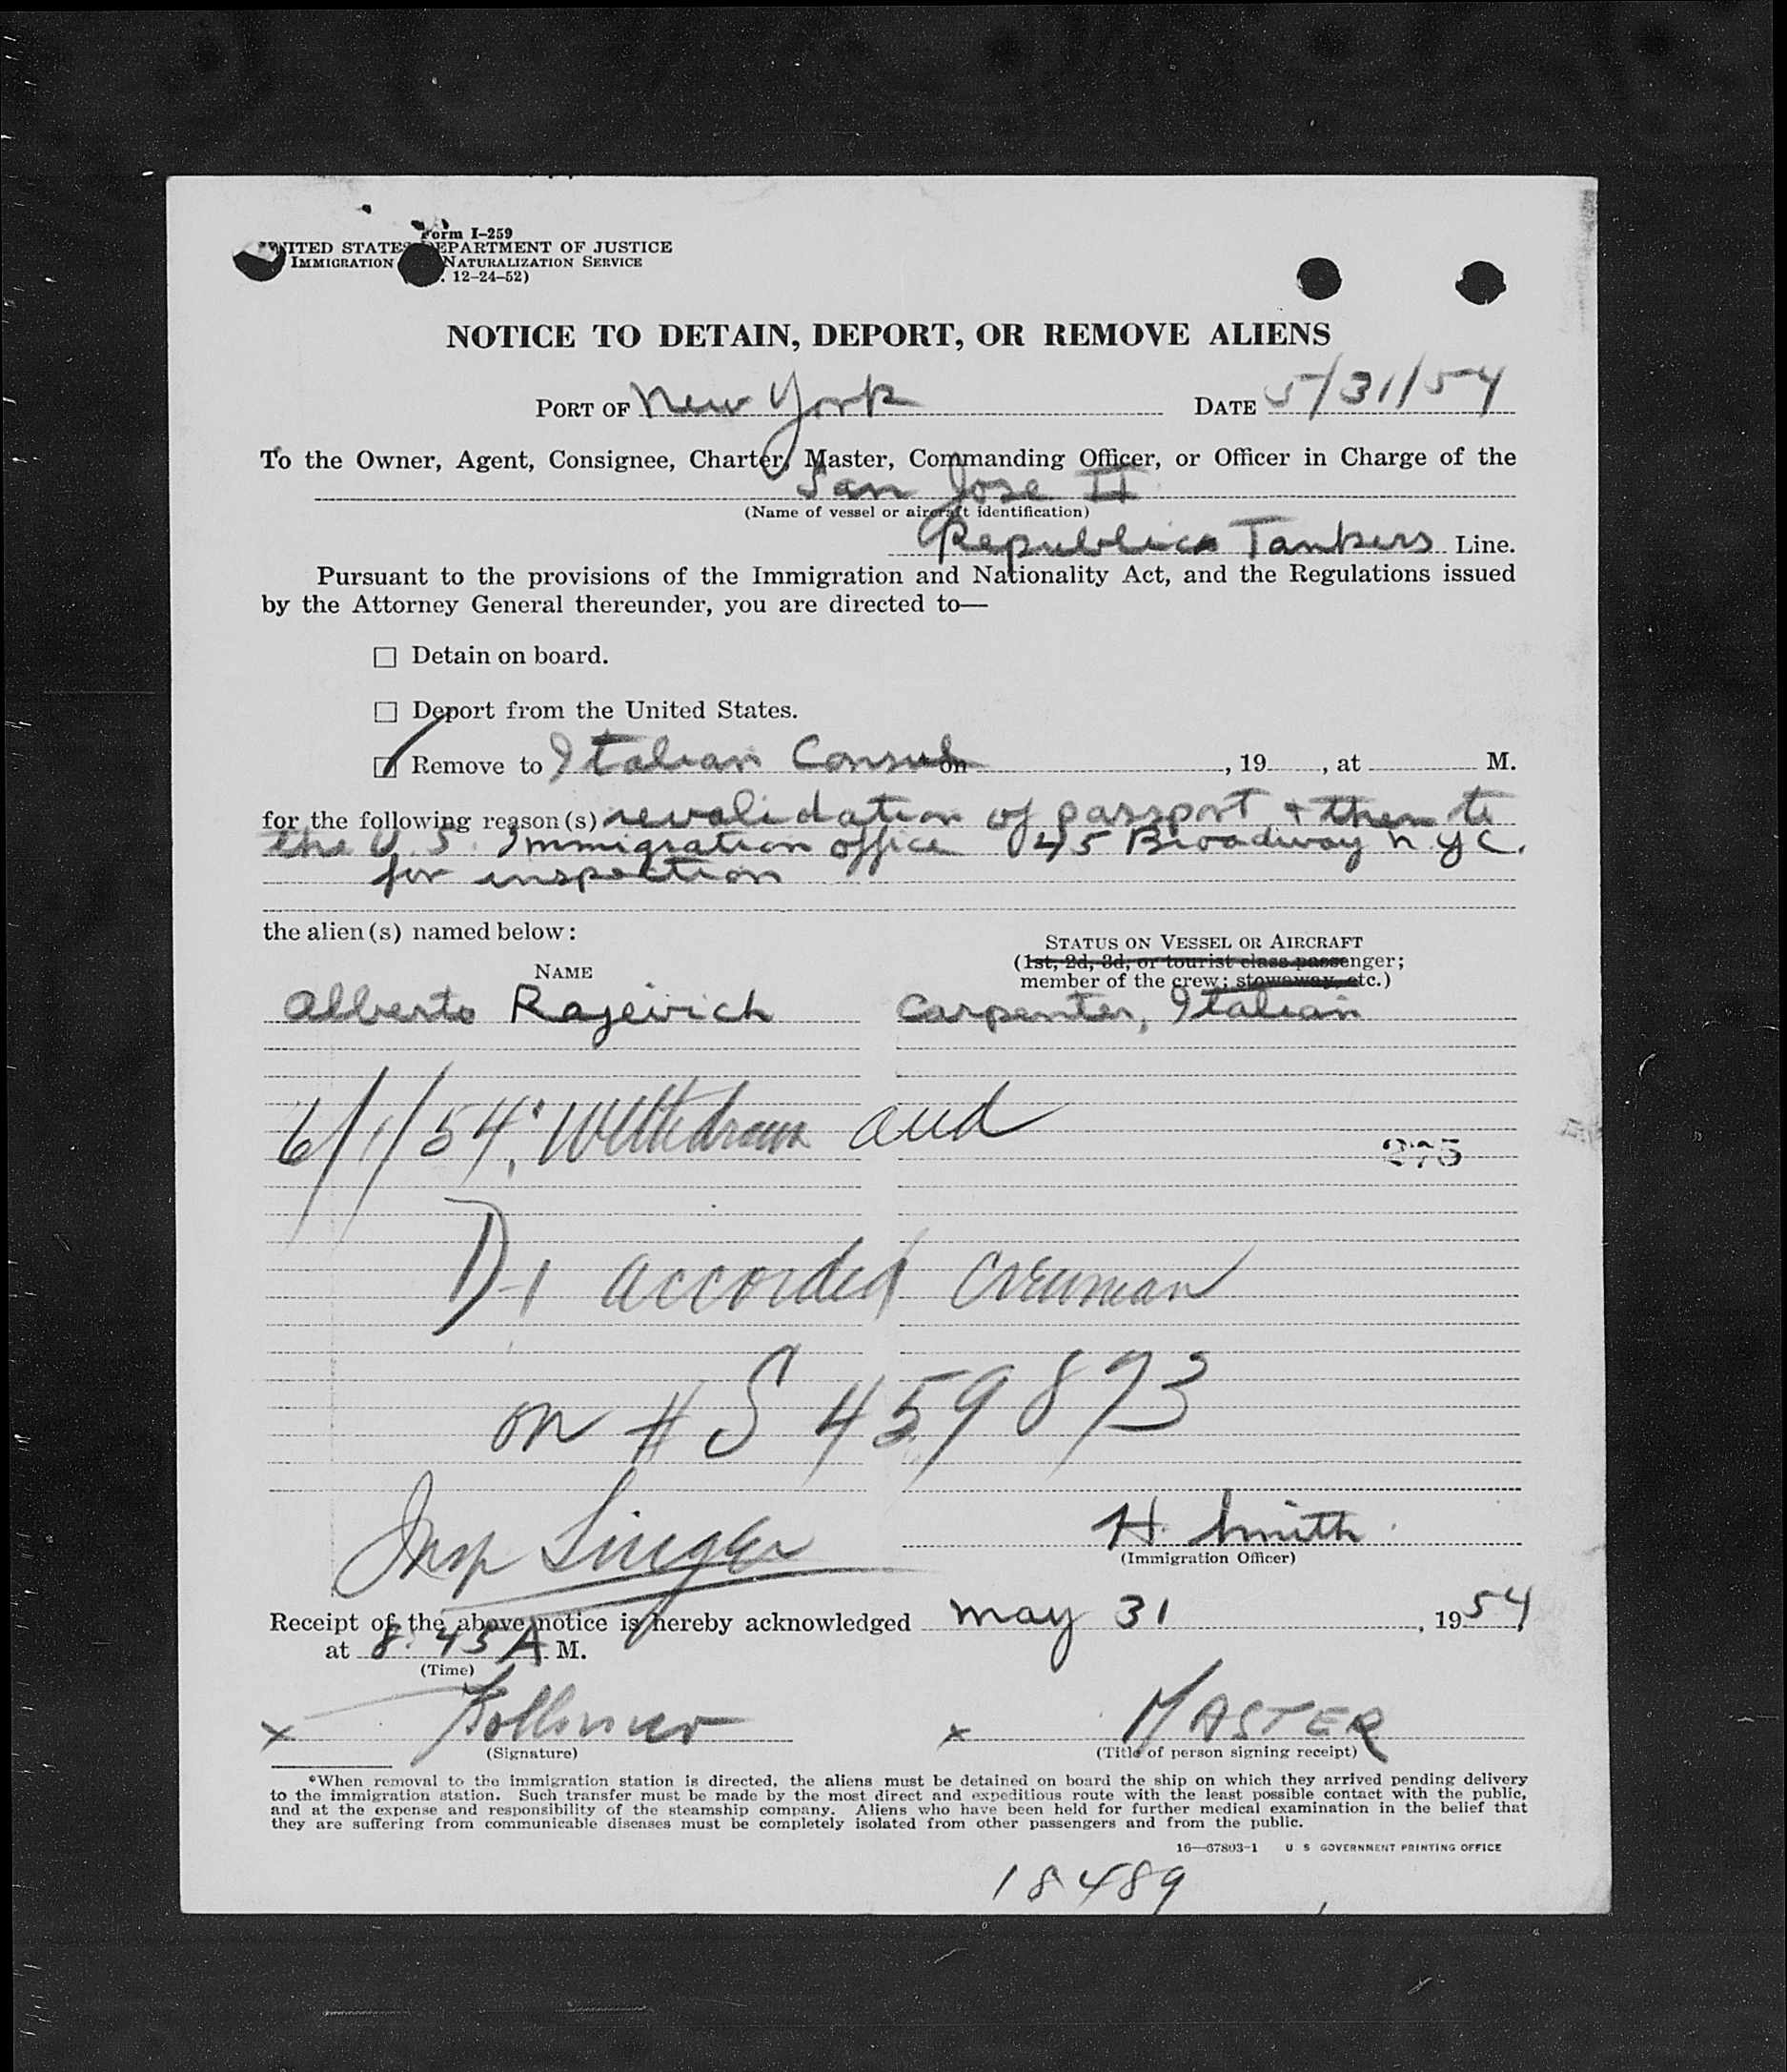 Form I-259
UNITED STATES DEPARTMENT OF JUSTICE
IMMIGRATION NATURALIZATION SERVICE
. 12-24-52)
NOTICE TO DETAIN, DEPORT, OR REMOVE ALIENS
PORT OF New York DATE 5/31/54
To the Owner, Agent, Consignee, Charter, Master, Commanding Officer, or Officer in Charge of the
San Jose II
(Name of vessel or aircraft identification)
Republics Tankers Line.
Pursuant to the provisions of the Immigration and Nationality Act, and the Regulations issued
by the Attorney General thereunder, you are directed to—
☐ Detain on board.
☐ Deport from the United States.
☑ Remove to Italian Consul on , 19 , at M.
for the following reason(s) revalidation of passport & then to
the U.S. Immigration office 45 Broadway N.Y.C.
for inspection
the alien(s) named below:
STATUS ON VESSEL OR AIRCRAFT
(1st, 2d, 3d, or tourist class passenger;
NAME
member of the crew; stowaway, etc.)
Alberto Rajevich Carpenter, Italian
6/1/54: Withdrawn and
275
D-1 accorded crewman
on # S 459873
Insp Singer
H. Smith
(Immigration Officer)
Receipt of the above notice is hereby acknowledged May 31, 1954
at 8:45 A M.
(Time)
x x MASTER
(Signature) (Title of person signing receipt)
*When removal to the immigration station is directed, the aliens must be detained on board the ship on which they arrived pending delivery
to the immigration station. Such transfer must be made by the most direct and expeditious route with the least possible contact with the public,
and at the expense and responsibility of the steamship company. Aliens who have been held for further medical examination in the belief that
they are suffering from communicable diseases must be completely isolated from other passengers and from the public.
16—67803-1 U. S. GOVERNMENT PRINTING OFFICE
18489